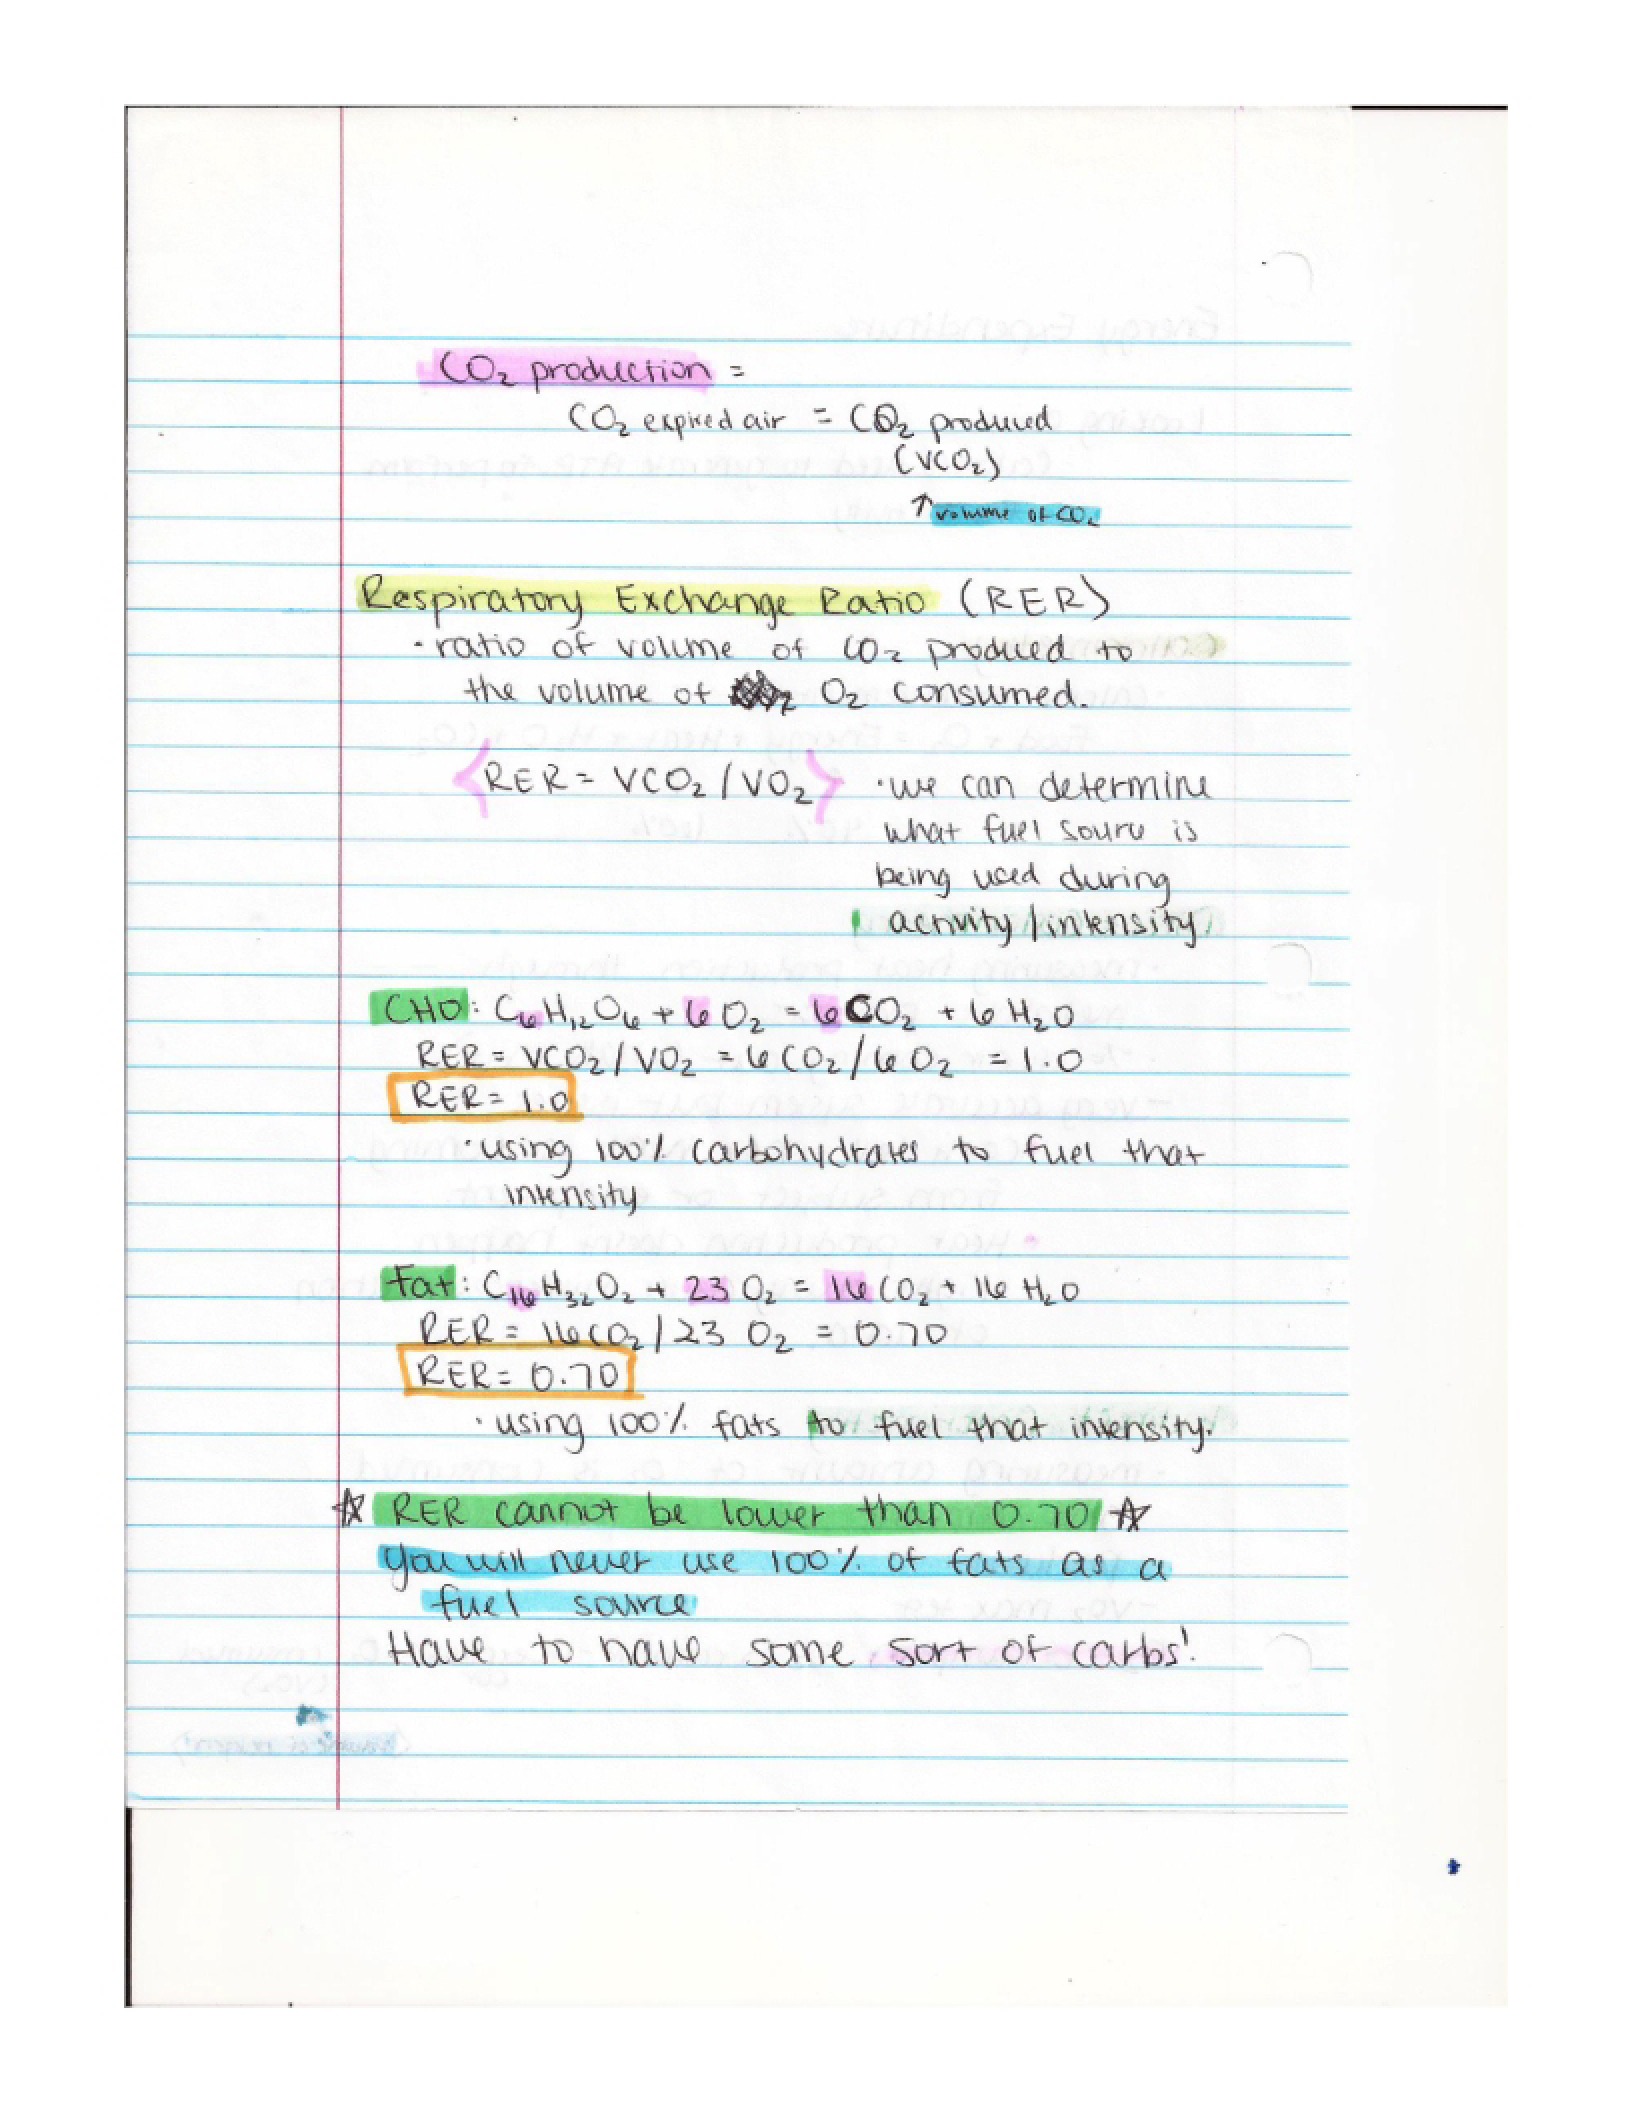 CO₂ production =
CO₂ expired air = CO₂ produced
(VCO₂)
↑ volume of CO₂
Respiratory Exchange Ratio (RER)
· ratio of volume of CO₂ produced to
the volume of O₂ consumed.
RER = VCO₂ / VO₂ · we can determine
what fuel source is
being used during
activity / intensity.
CHO: C₆H₁₂O₆ + 6 O₂ = 6 CO₂ + 6 H₂O
RER = VCO₂ / VO₂ = 6 CO₂ / 6 O₂ = 1.0
RER = 1.0
· using 100% carbohydrates to fuel that
intensity
Fat: C₁₆H₃₂O₂ + 23 O₂ = 16 CO₂ + 16 H₂O
RER = 16 CO₂ / 23 O₂ = 0.70
RER = 0.70
· using 100% fats to fuel that intensity.
☆ RER cannot be lower than 0.70 ☆
you will never use 100% of fats as a
fuel source
Have to have some sort of carbs!